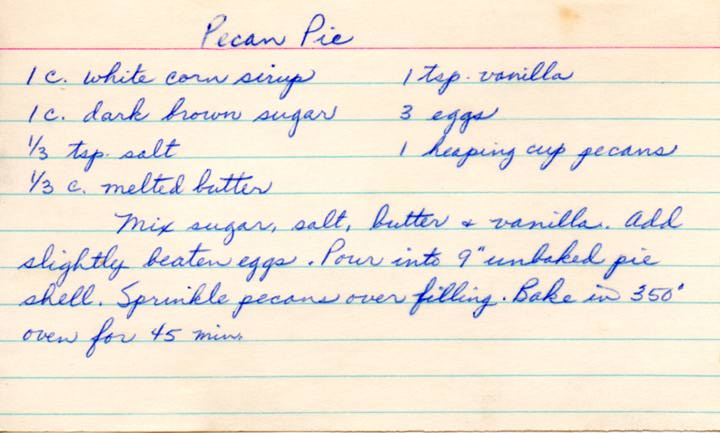 Pecan Pie
1 c. white corn sirup 1 tsp. vanilla
1 c. dark brown sugar 3 eggs
1/3 tsp. salt 1 heaping cup pecans
1/3 c. melted butter
Mix sugar, salt, butter + vanilla. Add
slightly beaten eggs. Pour into 9" unbaked pie
shell. Sprinkle pecans over filling. Bake in 350°
oven for 45 min.